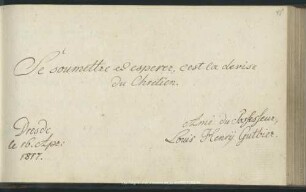 Se soumettre et esperer, c'est la devise
du Chretien.
Dresde
le 16. Apr:
1817.
Ami du Possesseur,
Louis Henry Guthier.